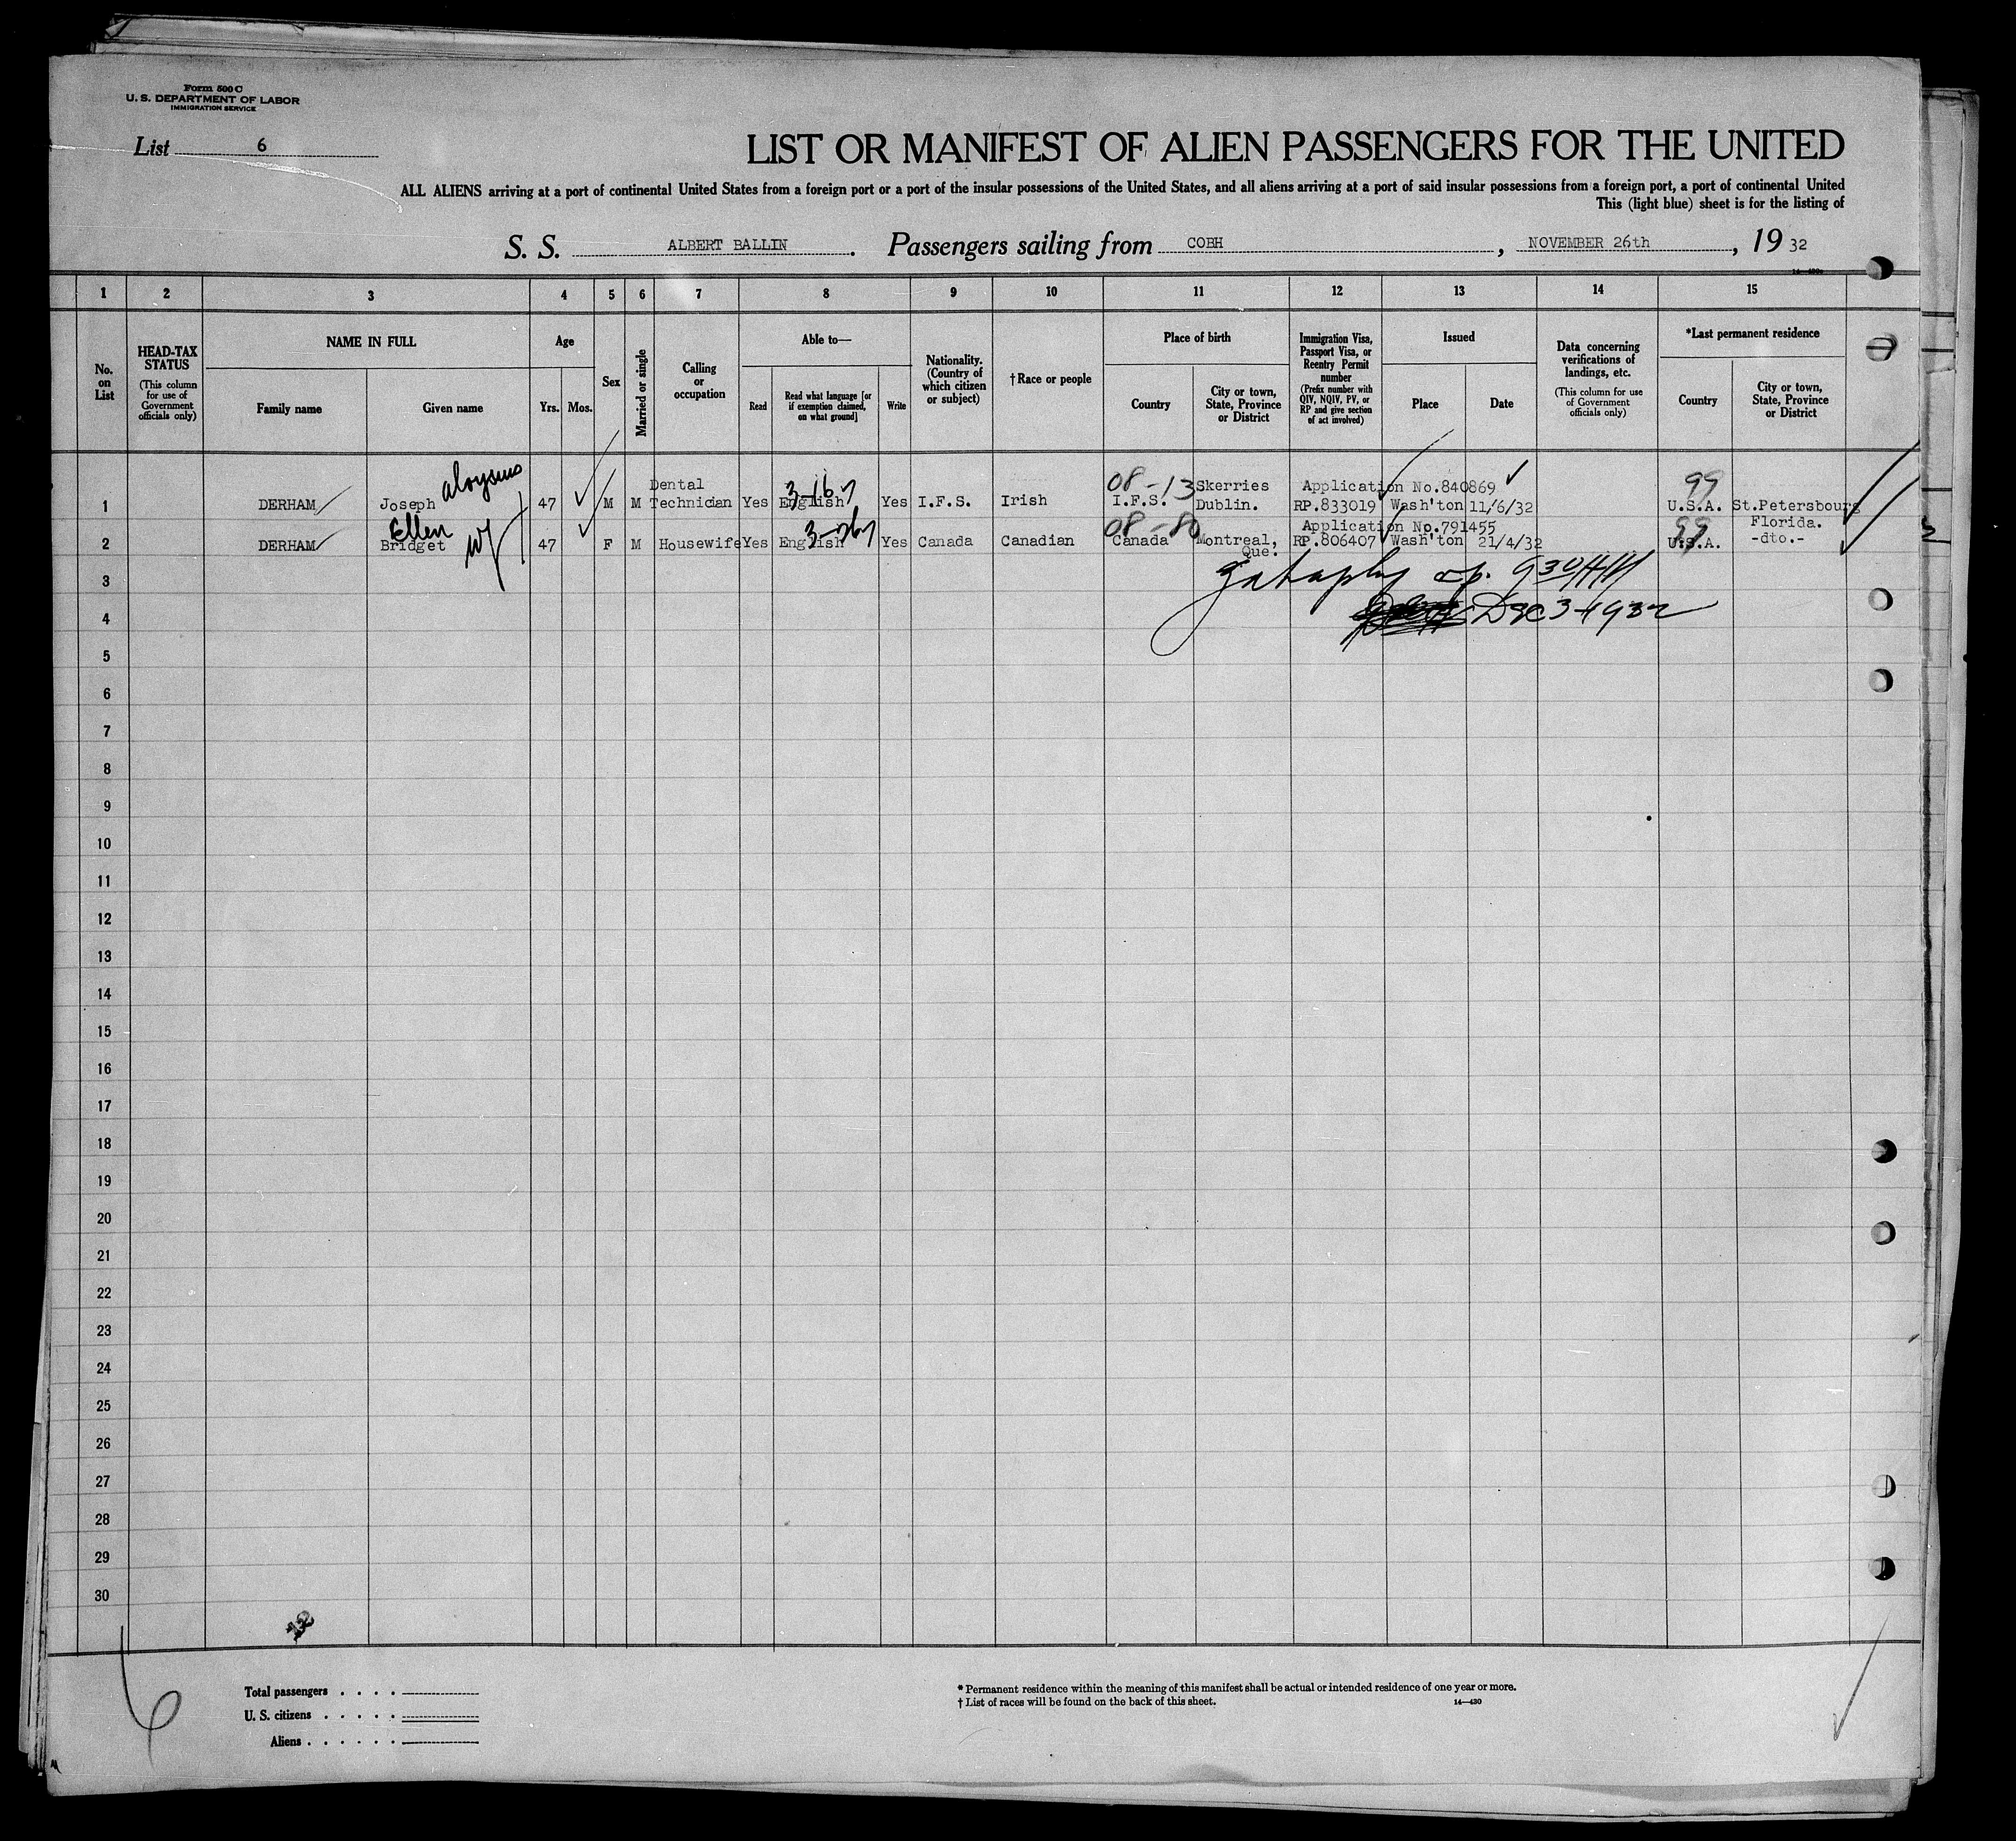 Form 500 C
U. S. DEPARTMENT OF LABOR
IMMIGRATION SERVICE
List 6
LIST OR MANIFEST OF ALIEN PASSENGERS FOR THE UNITED
ALL ALIENS arriving at a port of continental United States from a foreign port or a port of the insular possessions of the United States, and all aliens arriving at a port of said insular possessions from a foreign port, a port of continental United
This (light blue) sheet is for the listing of
S. S. ALBERT BALLIN. Passengers sailing from COBH, NOVEMBER 26th, 19 32
1 2 3 4 5 6 7 8 9 10 11 12 13 14 15
No. on List
HEAD-TAX STATUS
(This column for use of Government officials only)
NAME IN FULL
Family name
Given name
Age
Yrs. Mos.
Sex
Married or single
Calling or occupation
Able to—
Read
Read what language [or if exemption claimed, on what ground]
Write
Nationality. (Country of which citizen or subject)
†Race or people
Place of birth
Country
City or town, State, Province or District
Immigration Visa, Passport Visa, or Reentry Permit number
(Prefix number with QIV, NQIV, PV, or RP and give section of act involved)
Issued
Place
Date
Data concerning verifications of landings, etc.
(This column for use of Government officials only)
*Last permanent residence
Country
City or town, State, Province or District
Aloysius 3-16 08-13 99
Dental Skerries Application No.840869
1 DERHAM Joseph 47 M M Technician Yes English Yes I.F.S. Irish I.F.S. Dublin. RP.833019 Wash'ton 11/6/32 U.S.A. St.Petersbourg
Ellen wf 08-80 Application No.791455 99 Florida.
2 DERHAM Bridget 47 F M Housewife Yes English Yes Canada Canadian Canada Montreal, RP.806407 Wash'ton 21/4/32 U.S.A. -dto.-
Que.
3
Dec 3-1932
4
5
6
7
8
9
10
11
12
13
14
15
16
17
18
19
20
21
22
23
24
25
26
27
28
29
30
6
Total passengers . . . .
U. S. citizens . . . . .
Aliens . . . . . .
* Permanent residence within the meaning of this manifest shall be actual or intended residence of one year or more.
† List of races will be found on the back of this sheet. 14—430